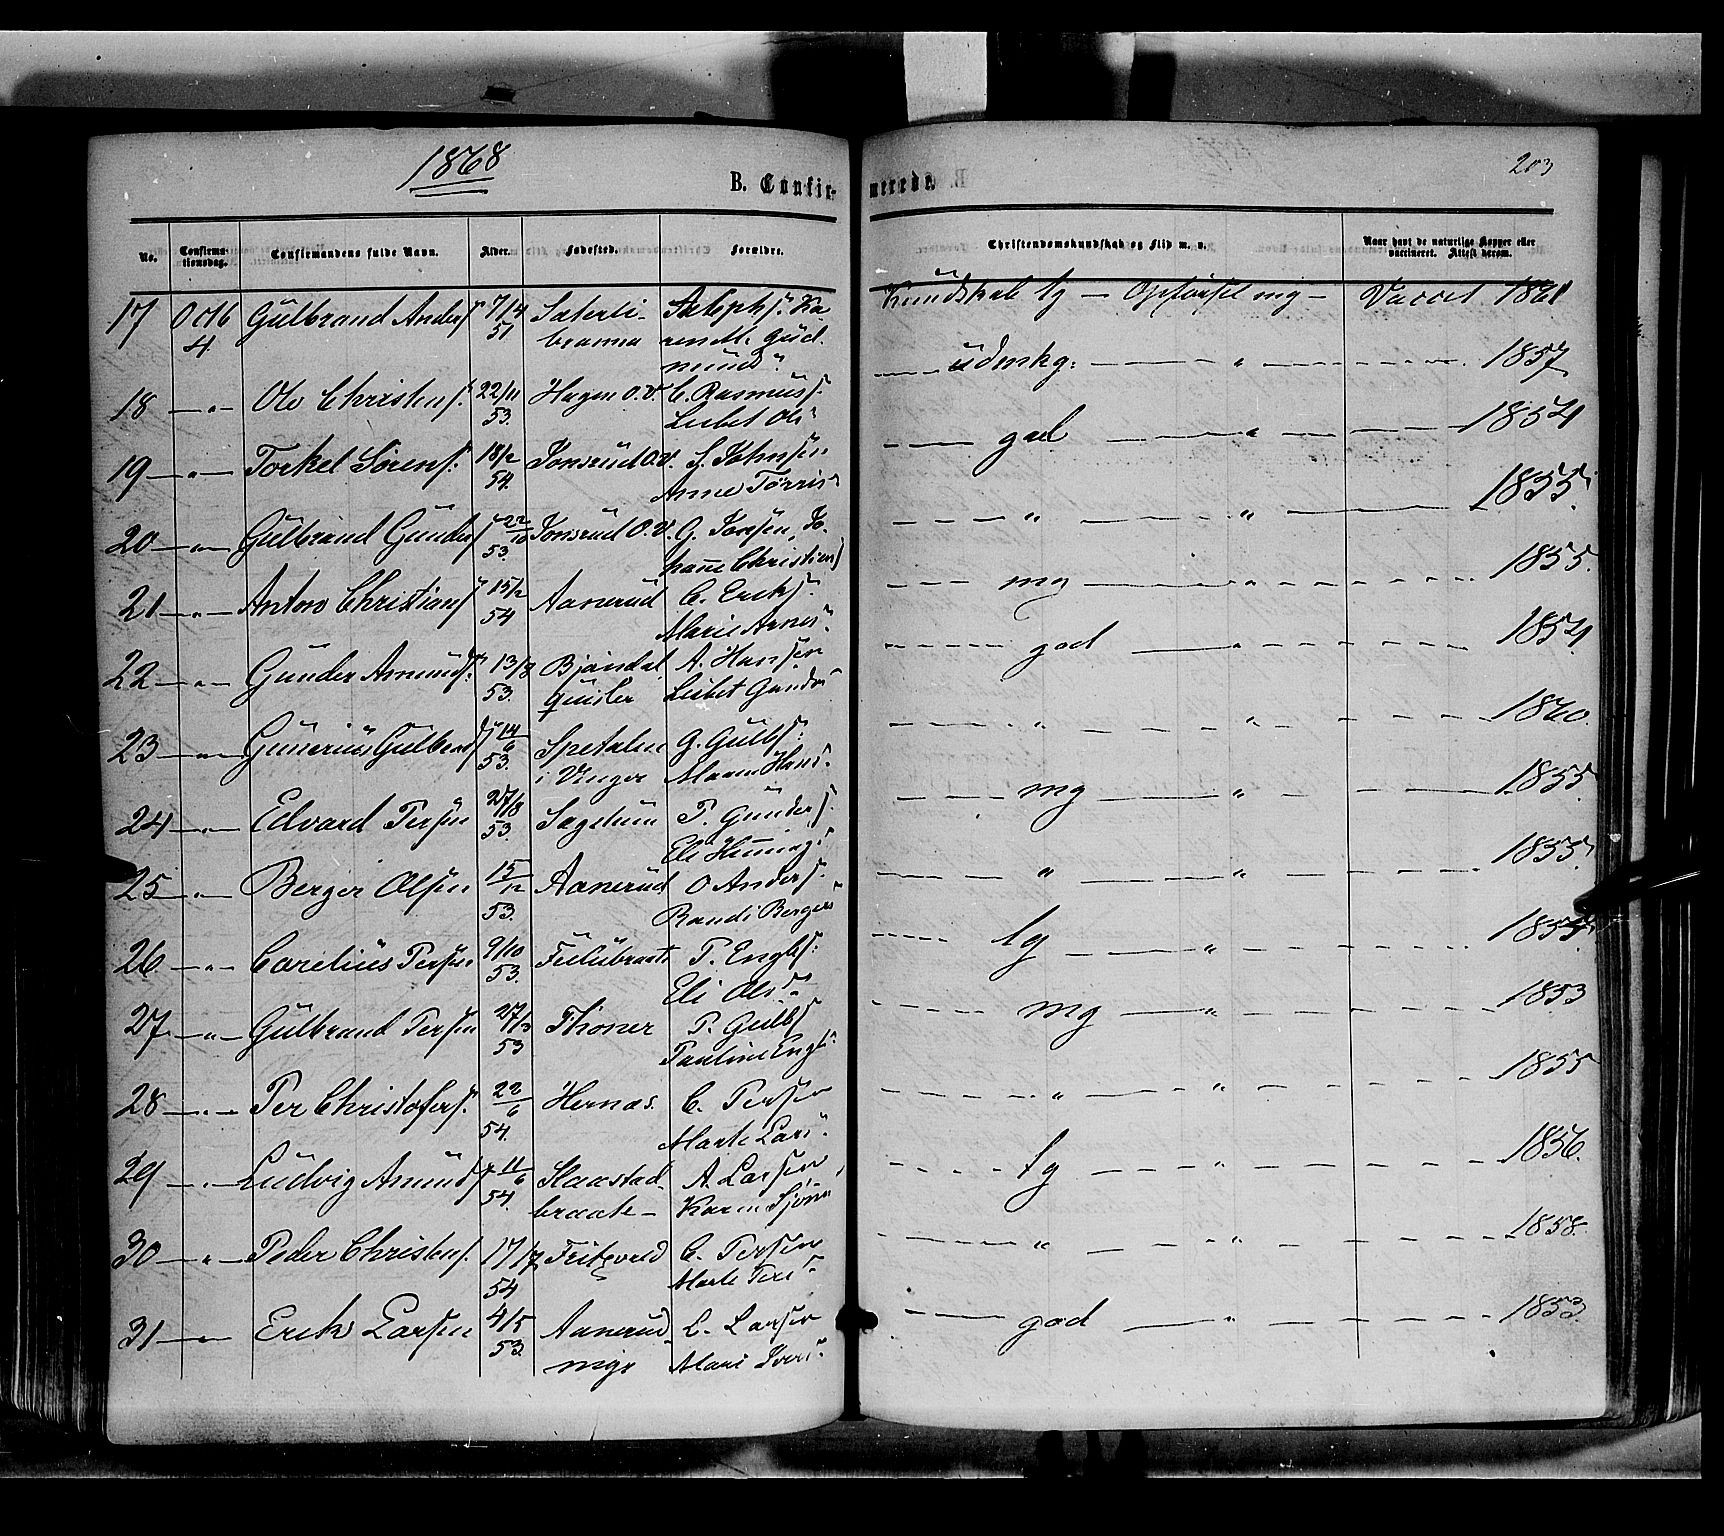 1868
203
B. Confir-
merede.
No.
Confirmationsdag.
Confirmandens fulde Navn.
Alder.
Fødested.
Forældre.
Christendomskundskab og Flid m. v.
Naar havt de naturlige Kopper eller vaccineret. Attest herom.
17 Octb 4. Gulbrand Anders. 7/4 51
Kundskab tg — Opførsel mg — Vaccet 1861
18 — " — Ole Christens. 22/11 53. Hagen O.V. C. Rasmuss. Lisbet Ols"
udmkg: — " — 1857
19 — " — Torkel Sørens. 18/2 54. Jonsrud O.V. S. Johnsen Anne Tørris"
god — " — 1854
20 — " — Gulbrand Gunders. 22/10 53. Jonsrud O.V. G. Jonsen, Johanne Christians
" — " — 1855
21 — " — Anton Christians. 15/2 54 Aanerud C. Eriks. Marie Arnes"
mg — " — 1855.
22 — " — Gunder Amunds. 13/8 53. A. Hansen Lisbet Gunders"
god — " — 1854
23 — " — Gunerius Gulbrands. 14/6 53. Spetalen i Vinger G. Gulbs. Maren Hans"
" — " — 1860.
24 — " — Edvard Persen 27/8 53. Sagstuen P. Gunders. Eli Hennings"
mg — " — 1855
25 — " — Berger Olsen 15/12 53. Aanerud O Anders. Randi Bergers"
" — " — 1855
26 — " — Carelius Persen 9/10 53. P. Englbs. Eli Ols"
tg — " —
27 — " — Gulbrand Persen 27/3 53 Thoner P. Gulbs. Pauline Engl"
mg — " — 1853
28 — " — Per Christofers. 22/6 54. Hernæs. C. Persen Marte Lars"
" — " — 1855
29 — " — Ludvig Amunds. 11/6 54. Skaarstad braate — A. Larsen Karen
tg — " — 1856.
30 — " — Peder Christens. 17/7 54 C. Persen Marte Pers"
" — " — 1858.
31 — " — Erik Larsen 4/5 53. Aanerud L. Larsen Mari Ivers"
god — " — 1853